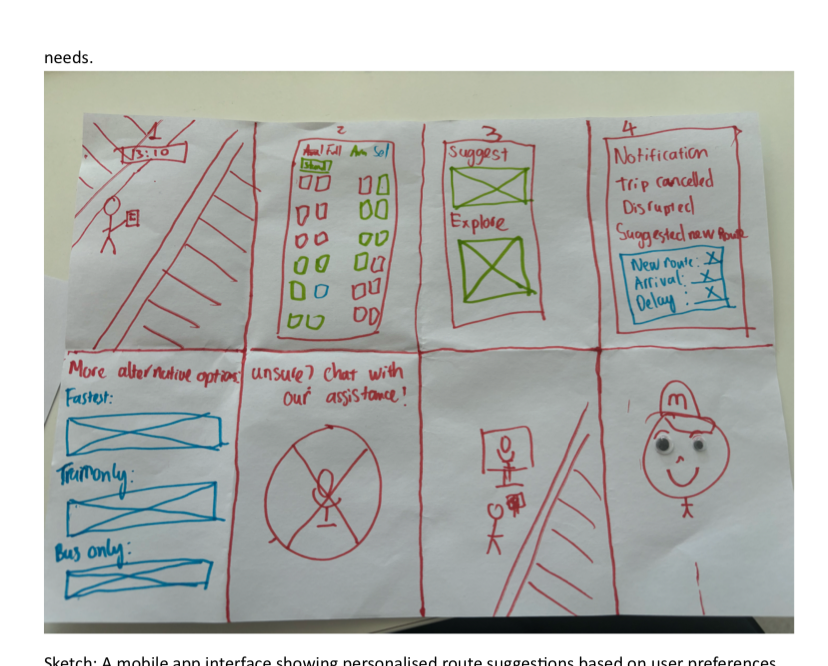 needs.
1
13:10
E
2
Full
Sol
3
Suggest
Explore
4
Notification
trip cancelled
Disrupted
Suggested new Route
New route: X
Arrival: X
Delay : X
More alternative option:
Fastest:
Tramonly:
Bus only:
unsure? Chat with
our assistance!
m
Sketch: A mobile app interface showing personalised route suggestions based on user preferences